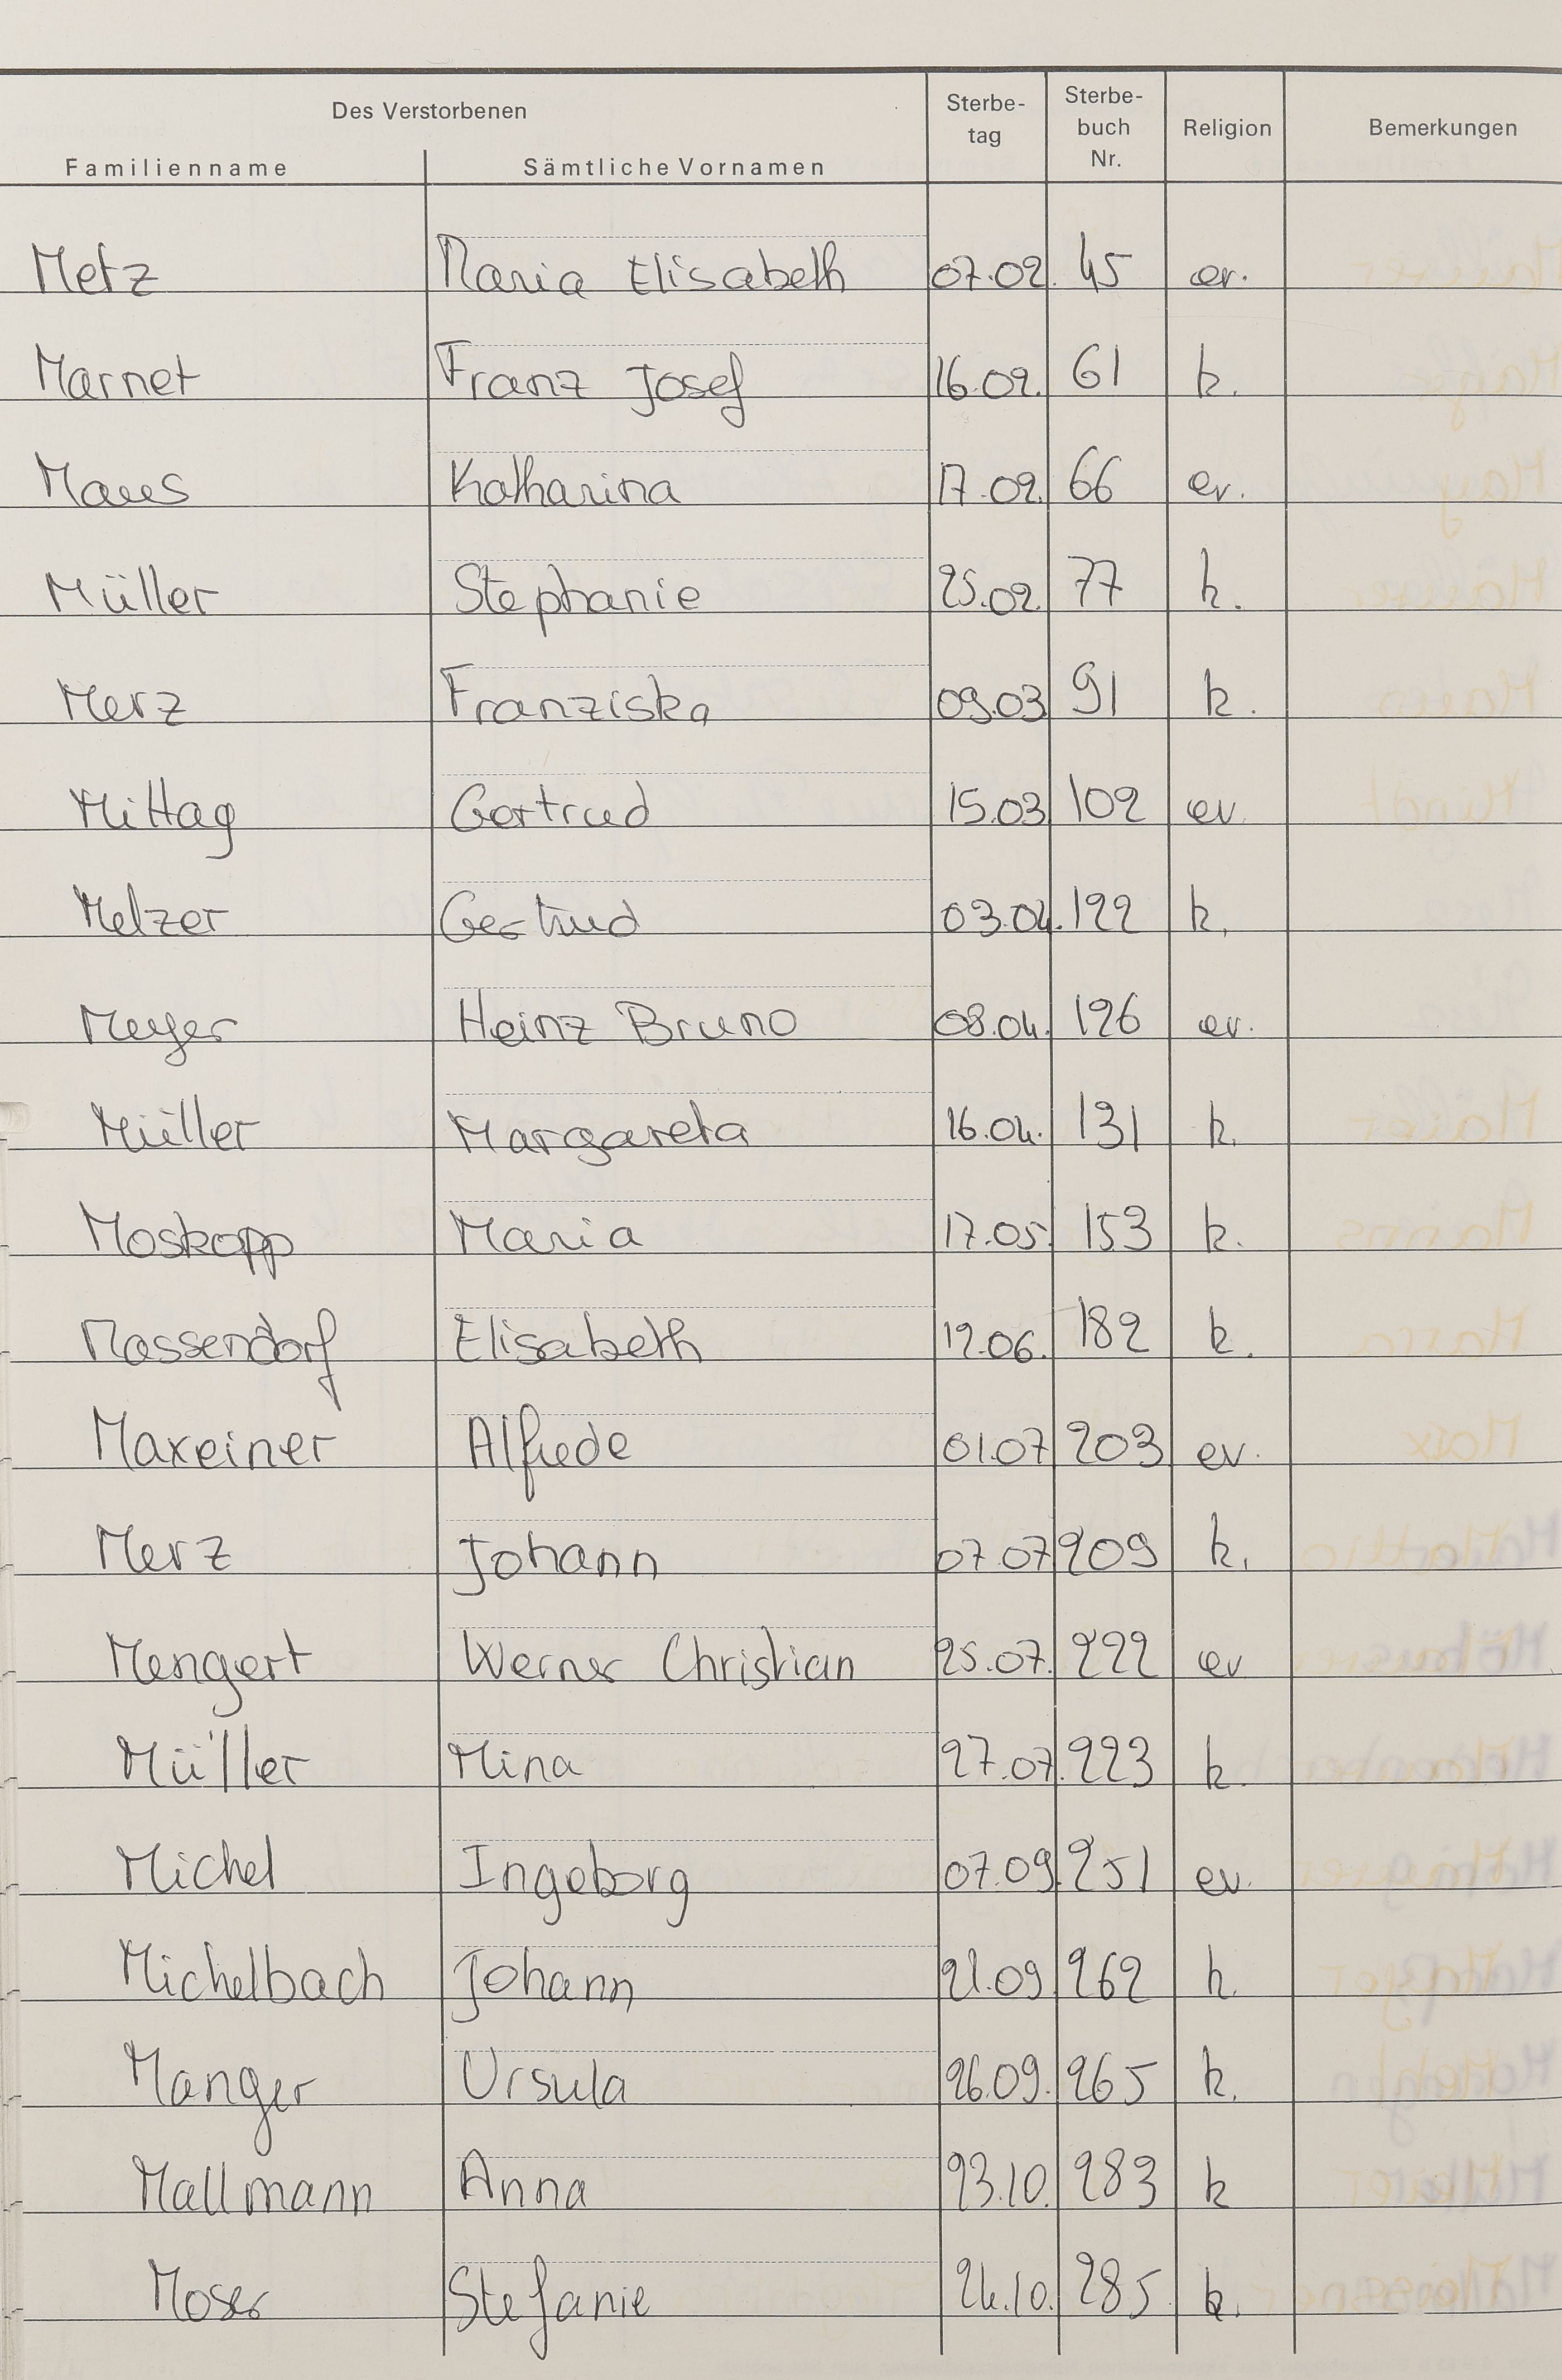 Des Verstorbenen
Familienname Sämtliche Vornamen Sterbe-tag Sterbe-buch Nr. Religion Bemerkungen
Metz Maria Elisabeth 07.02. 45 ev.
Marnet Franz Josef 16.02. 61 k.
Maus Katharina 17.02. 66 ev.
Müller Stephanie 25.02. 77 k.
Merz Franziska 09.03 91 k.
Mittag Gertrud 15.03 102 ev.
Melzer Gertrud 03.04. 122 k.
Meyer Heinz Bruno 08.04. 126 ev.
Müller Margareta 16.04. 131 k.
Moskopp Maria 17.05. 153 k.
Massendorf Elisabeth 12.06. 182 k.
Maxeiner Alfrede 01.07 203 ev.
Merz Johann 07.07 209 k.
Mengert Werner Christian 25.07. 222 ev
Müller Mina 27.07. 223 k.
Michel Ingeborg 07.09. 251 ev.
Michelbach Johann 21.09 262 k.
Manger Ursula 26.09. 265 k.
Mallmann Anna 23.10. 283 k
Moser Stefanie 24.10. 285 k.